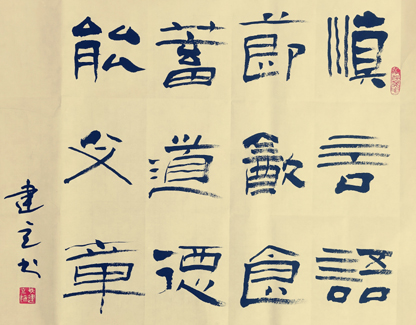 慎言語
節飲食
蓄道德
能文章
建立书